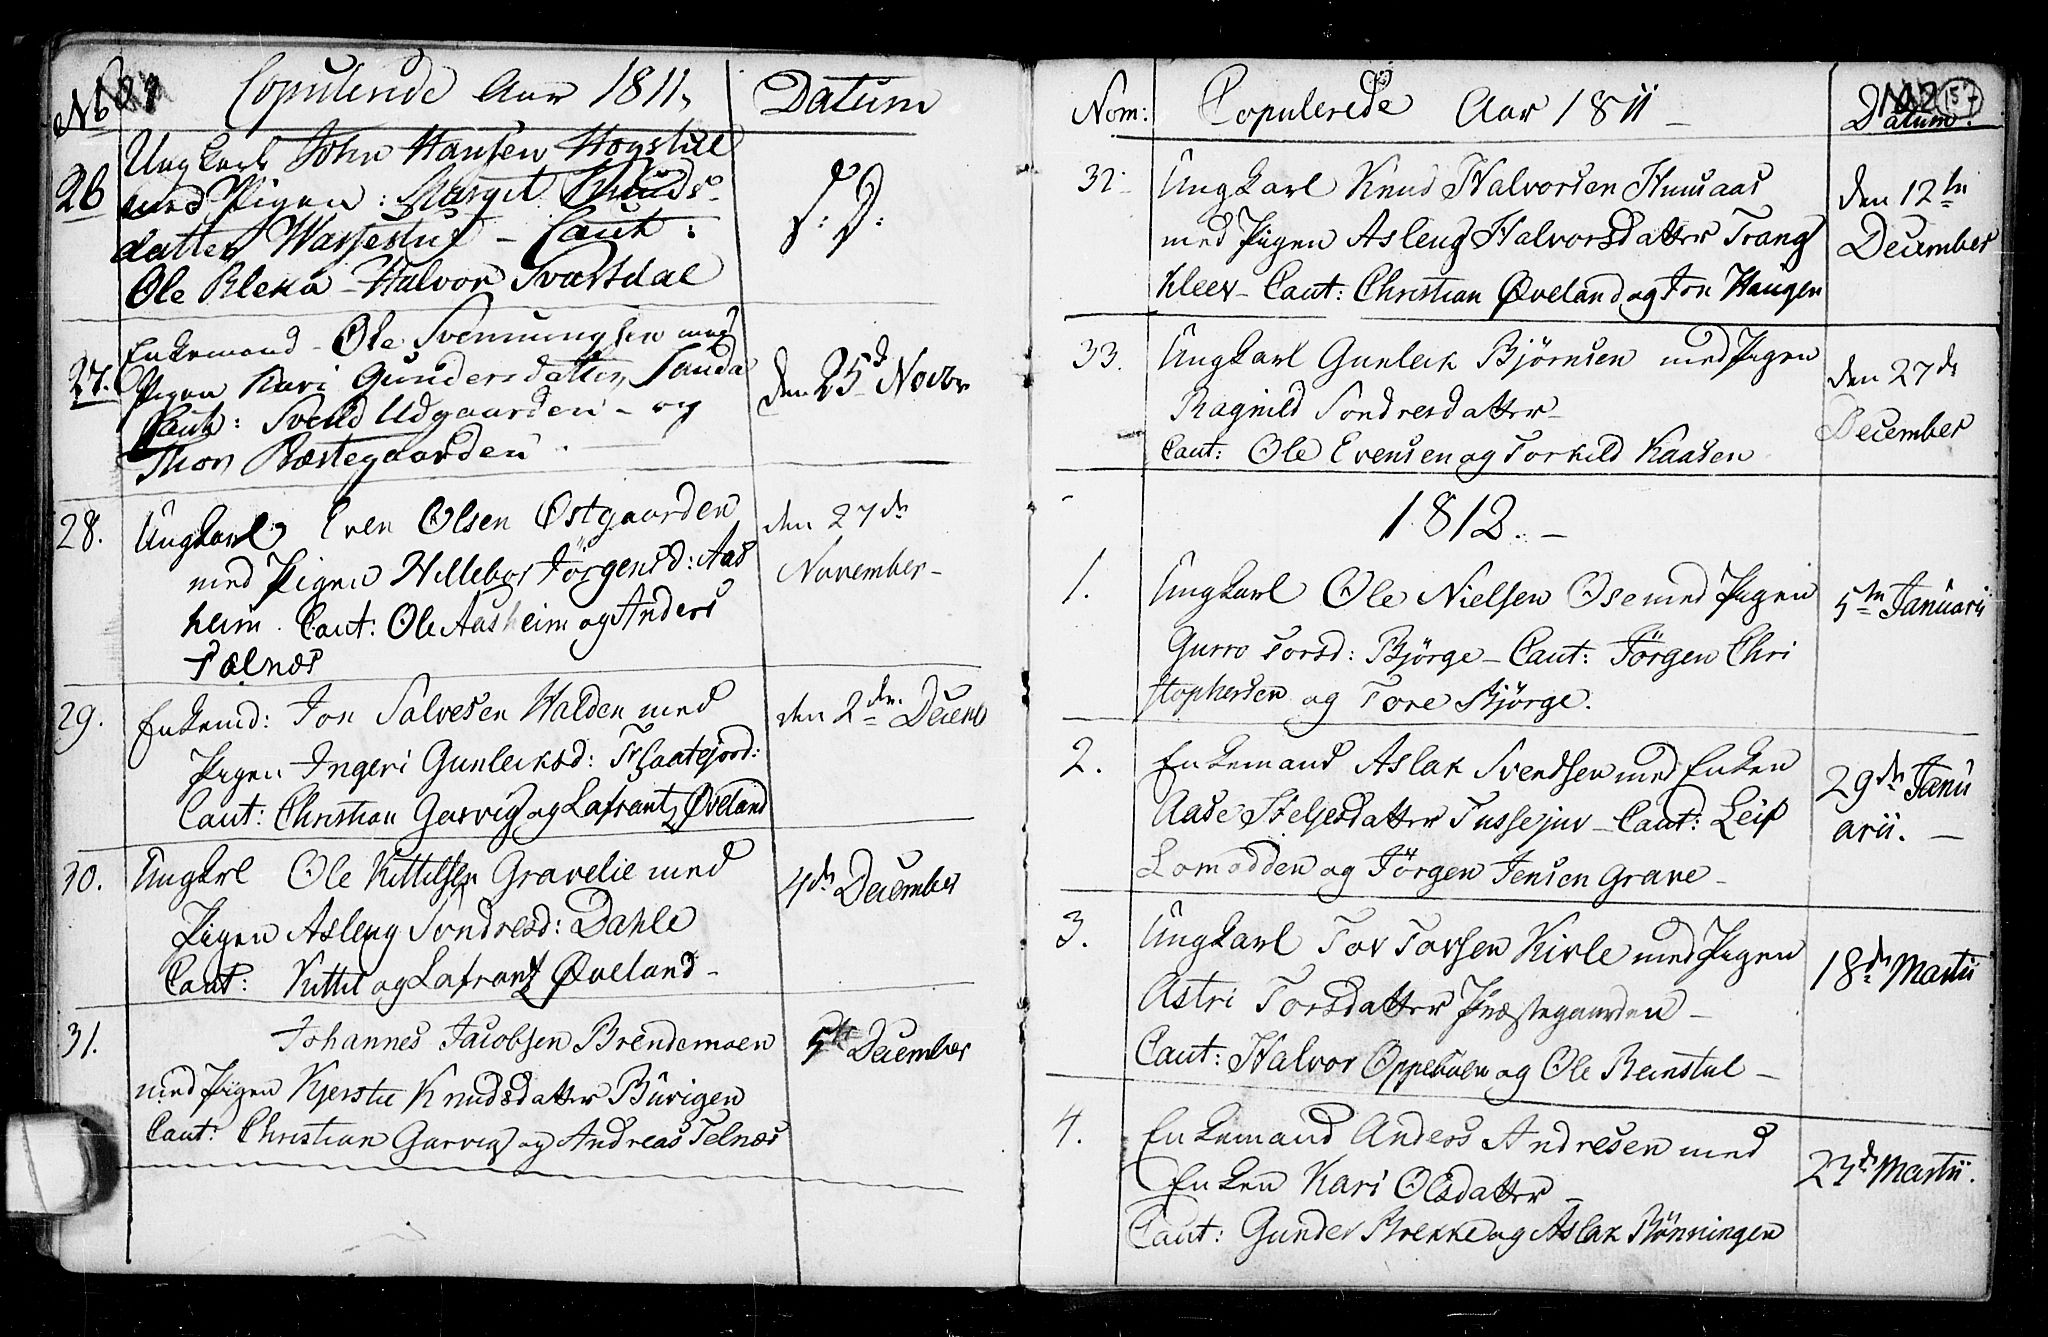 No
Copulerede Aar 1811,
Datum
26
Ungkarl John Hansen Hogstul
med Pigen: Margit Knuds-
datter Wassestuf - Caut:
Ole Bleka - Halvor Svartdal
S: D:
27.
Enkemand - Ole Svennungsen med
Pigen Kari Gundersdatter, Sauda
Caut: Svend Udgaarden - og
Thor Præstegaarden
den 25d Novbr
28.
Ungkarl Even Olsen Østgaarden
med Pigen Hellebor Jörgensd: Aas
heim. Caut: Ole Aasheim og Anders
Tælnæs
den 27de
November-
29.
Enkemd: Jon Salvesen Halden med
Pigen Ingeri Gunleiksd:
Caut: Christian Garvig og Lafrantz Øveland
den 2den Decemb
30.
Ungkrl Ole Kittilsen Gravelie med
Pigen Asleug Sondresd: Dahle
Caut: Kittil og Lafrantz Øveland -
4de December
31.
Johannes Jacobsen Brendemoen
med Pigen Kjerstie Knudsdatter Bürigen
Caut: Christian Garvig og Andreas Telnæs
5te December
Nom:
Copulerede Aar 1811 -
Datum.
157
32.
Ungkarl Knud Halvorsen Huusaas
med Pigen Asleug Halvorsdatter Trang
kleev - Caut: Christian Øveland og Jon Haugen
den 12te
December
33.
Ungkarl Gunleik Bjørnsen med Pigen
Ragnild Sondresdatter -
Caut: Ole Evensen og Torkild Kaasen
den 27de
December
1812. -
1.
Ungkarl Ole Nielsen Ose med Pigen
Gurro Torsd: Bjørge - Caut: Jörgen Chri
stophersen og Tore Bjørge.
5te Januarii
2.
Enkemand Aslak Svendsen med Enken
Aase Steljesdatter Tussejuv - Caut: Leif
Lomodden og Jörgen Jensen Grave -
29de Janu
arii. -
3.
Ungkarl Tov Tovsen Kivle med Pigen
Astri Torsdatter Præstegaarden -
Caut: Halvor Oppebøen og Ole Reinstul -
18de Martii
4.
Enkemand Anders Andresen med
Enken Kari Olsdatter -
Caut: Gunder Brekke og Aslak Rönningen
23de Martii.